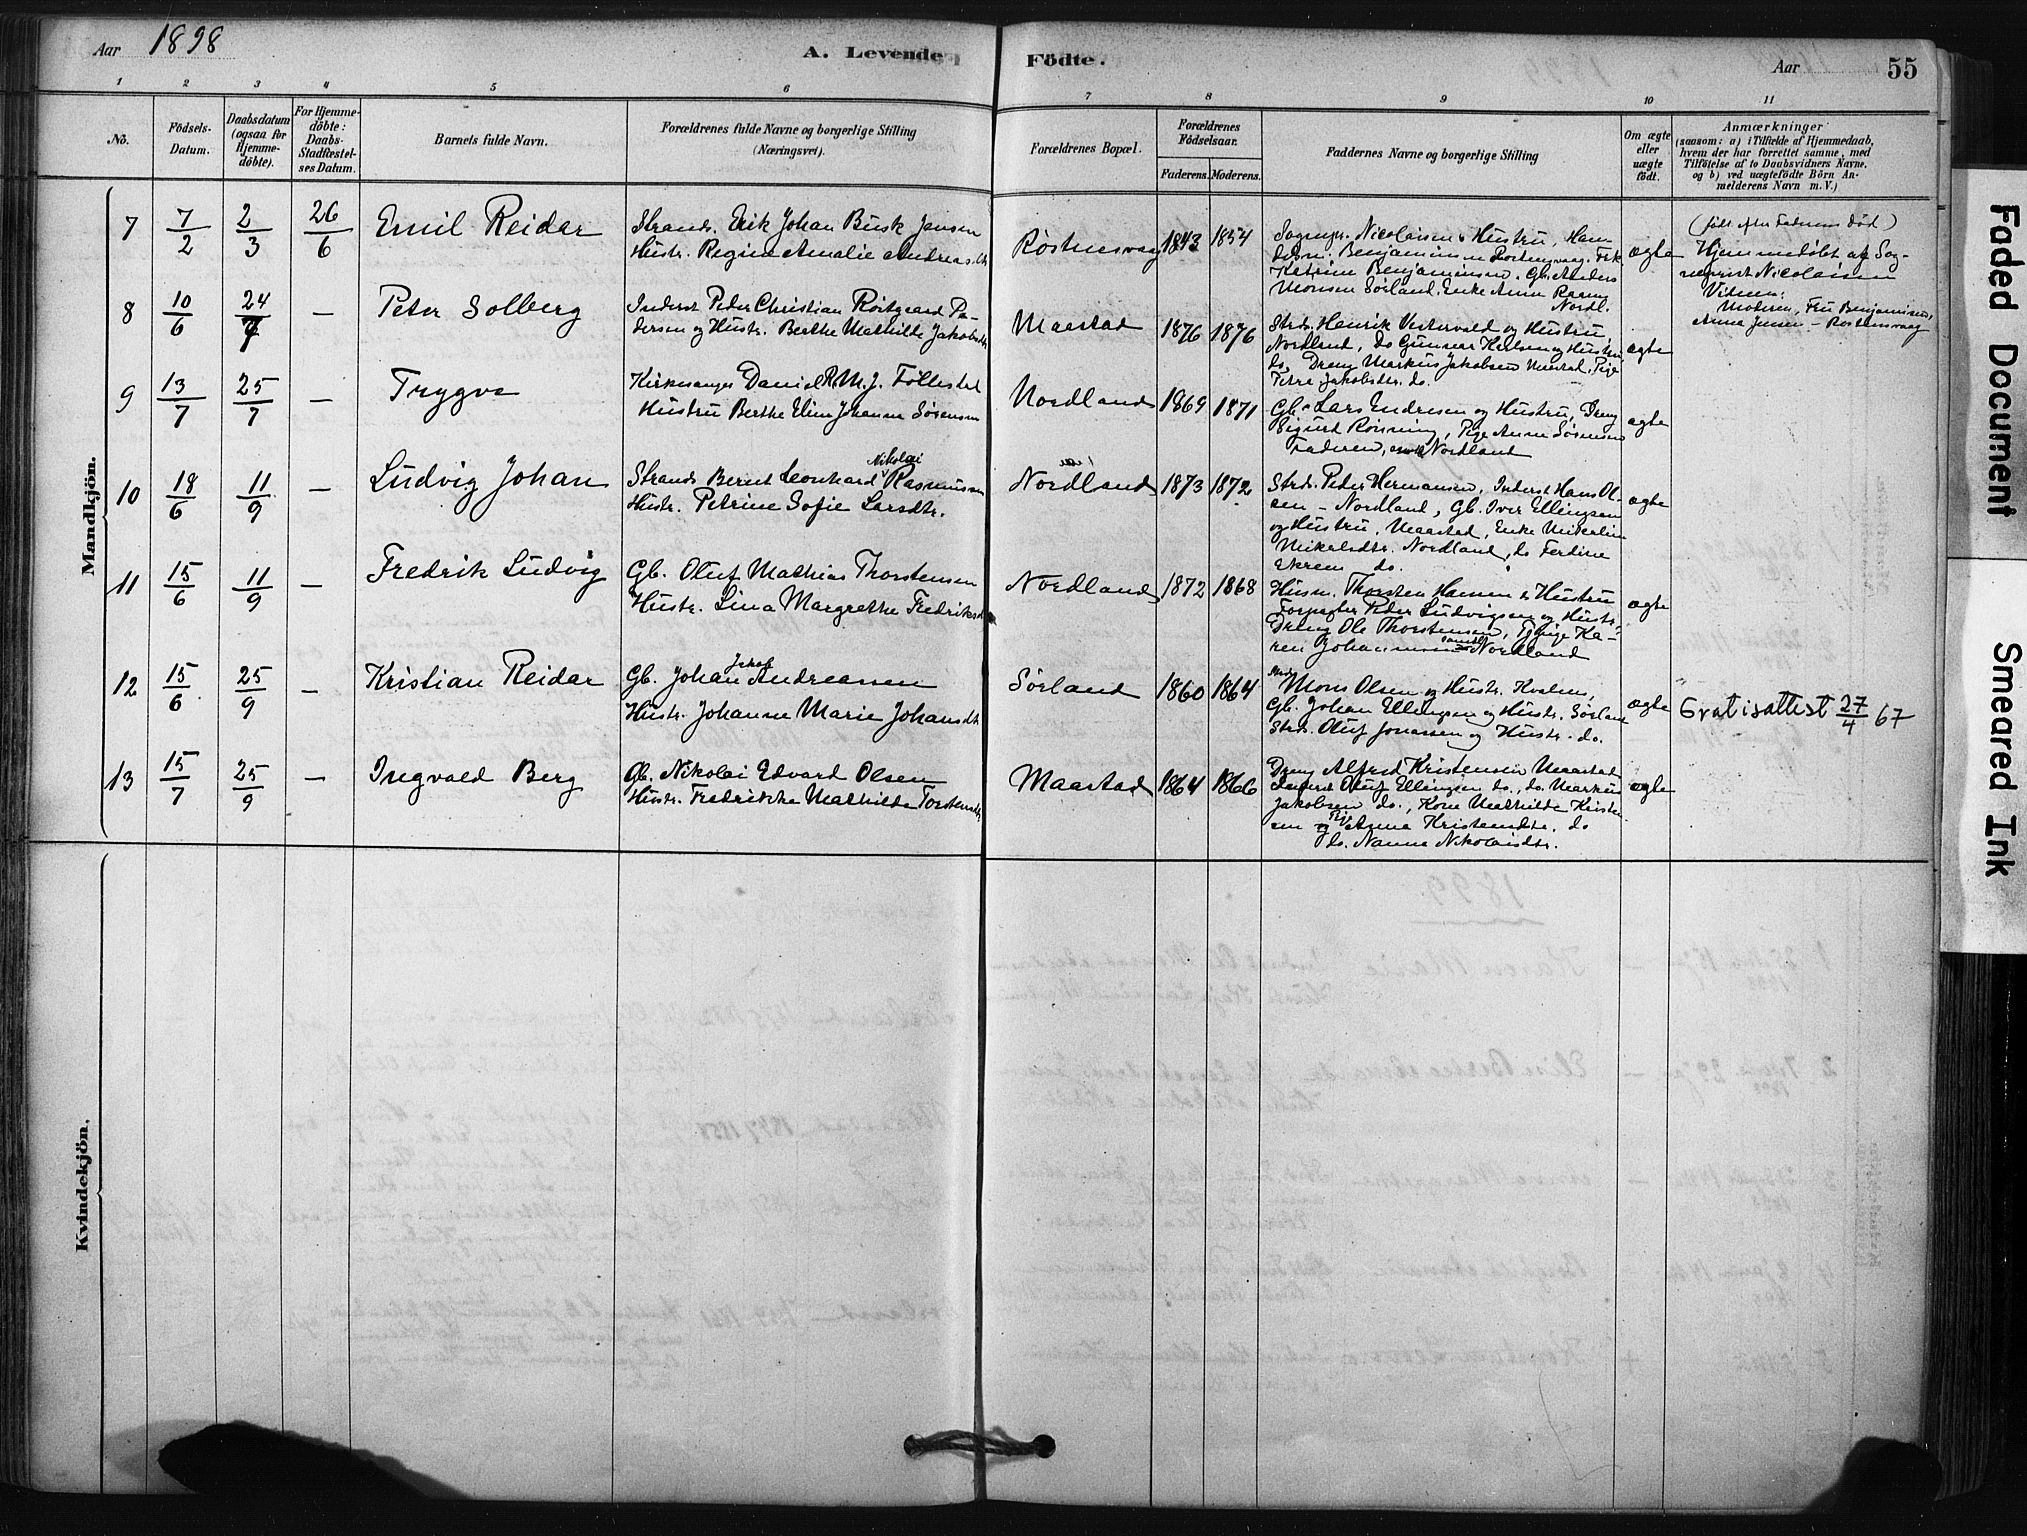 Aar 1898
A. Levende Födte.
Aar
55
1 2 3 4 5 6 7 8 9 10 11
No.
Födsels-Datum.
Daabsdatum (ogsaa for Hjemme-döbte).
For Hjemme-döbte: Daabs-Stadfæstel-ses Datum.
Barnets fulde Navn.
Forældrenes fulde Navne og borgerlige Stilling (Næringsvei).
Forældrenes Bopæl.
Forældrenes Födselsaar.
Faderens. Moderens.
Faddernes Navne og borgerlige Stilling
Om ægte eller uægte födt.
Anmærkninger
(saasom: a) i Tilfælde af Hjemmedaab,
hvem der har forrettet samme, med
Tilföielse af to Daabsvidners Navne,
og b) ved uægtefödte Börn An-
melderens Navn m. V.)
Mandkjön.
7 7/2 2/3 26/6 Emil Reidar
Strands. Erik Johan Busk Jensen
Hustr. Regine Amalie Andreasdtr
Røstnesvaag 1843 1854
Sognepr. Nicolaisen & Hustru, Han
Benjaminsen Røstnesvaag, Frk
Katrine Benjaminsen, Gb. Anders
Monsen Sørland, Enke Anne
Nordl.
ægte
(født efter Faderens Død)
Hjemmedøbt af Sog-
nepræst Nicolaisen
Vidner:
Moderen, Fru Benjaminsen,
Anna Jensen - Røstnesvaag
8 10/6 24/7 — Peter Solberg
Inderst Peder Christian Rostgaard Pe-
dersen og Hustr. Berthe Mathilde Jakobsdtr
Maastad 1876 1876
Strds. Henrik Vestervold og Hustru
Nordland, do Gunnar Karlsen og Hustru
do, Dreng Markus Jakobsen Maastad, Pige
Petra Jakobsdtr. do.
ægte
9 13/7 25/7 — Trygve
Kirkesanger Daniel R. M. J. Føllestad
Hustru Berthe Eline Johanne Sørensen
Nordland 1869 1871
Gb. Lars Endresen og Hustru, Dreng
Sigurd Rönning, Pige Anne Sørensen
Faderen, Nordland
ægte
10 18/6 11/9 — Ludvig Johan
Strands Bernt Leonhard Nikolai Rasmussen
Hustr. Petrine Sofie Larsdtr.
Nordland 1873 1872
Strds. Peder Hermansen, Inderst Hans Ol-
sen - Nordland, Gb. Iver Ellingsen
og Hustru, Maastad, Enke Nikoline
Nikolaidtr. Nordland, do Ferdine
Ekrem do.
ægte
11 15/6 11/9 — Fredrik Ludvig
Gb. Oluf Mathias Thorstensen
Hustr. Lina Margrethe Fredriksdtr
Nordland 1872 1868
Husm. Thorsten Hansen & Hustru
Forpagter Peder Ludvigsen og Hustr.
Dreng Ole Thorstensen, Pige Ka-
ren Johannesen samtl. Nordland
ægte
12 15/6 25/9 — Kristian Reidar
Gb. Johan Jakob Andreassen
Hustr. Johanne Marie Johansdtr
Sørland 1860 1864
Mons Olsen og Hustr. Kvalnes,
Gb. Johan Ellingsen og Hustr. Sørland
Strds. Oluf Jonassen og Hustr. do.
ægte
Gratisattest 27/4 67
13 15/7 25/9 — Ingvald Berg
Gb. Nikolai Edvard Olsen
Hustr. Fredrikke Mathilde Torstensdtr
Maastad 1864 1866
Dreng Alfred Kristensen Maastad
Inderst Oluf Ellingsen do., do. Markus
Jakobsen do., Kone Mathilde Kristen-
sen og Pige Anna Kristensdtr. do
do. Nanna Nikolaidtr.
ægte
Kvindekjön.
Faded Document
Smeared Ink